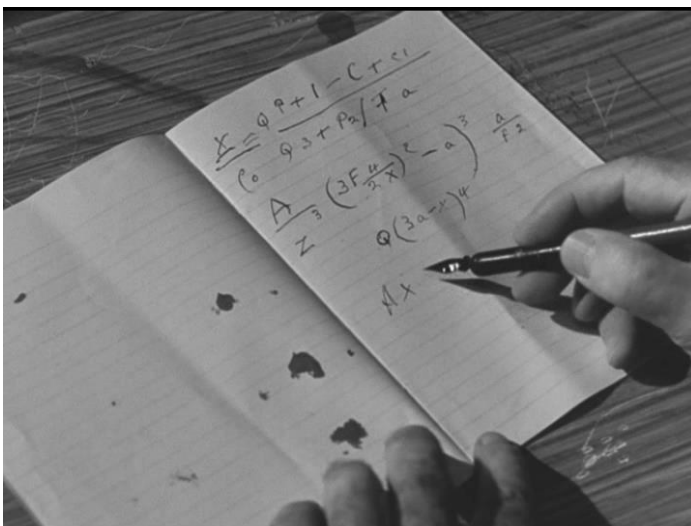 x/c₀ = Q P + 1 − C + c1 / Q 3 + P2 / F a
A/Z ³ (3F 4/2x)² − a)³ a/F2
Q(3a−x)⁴
Ax